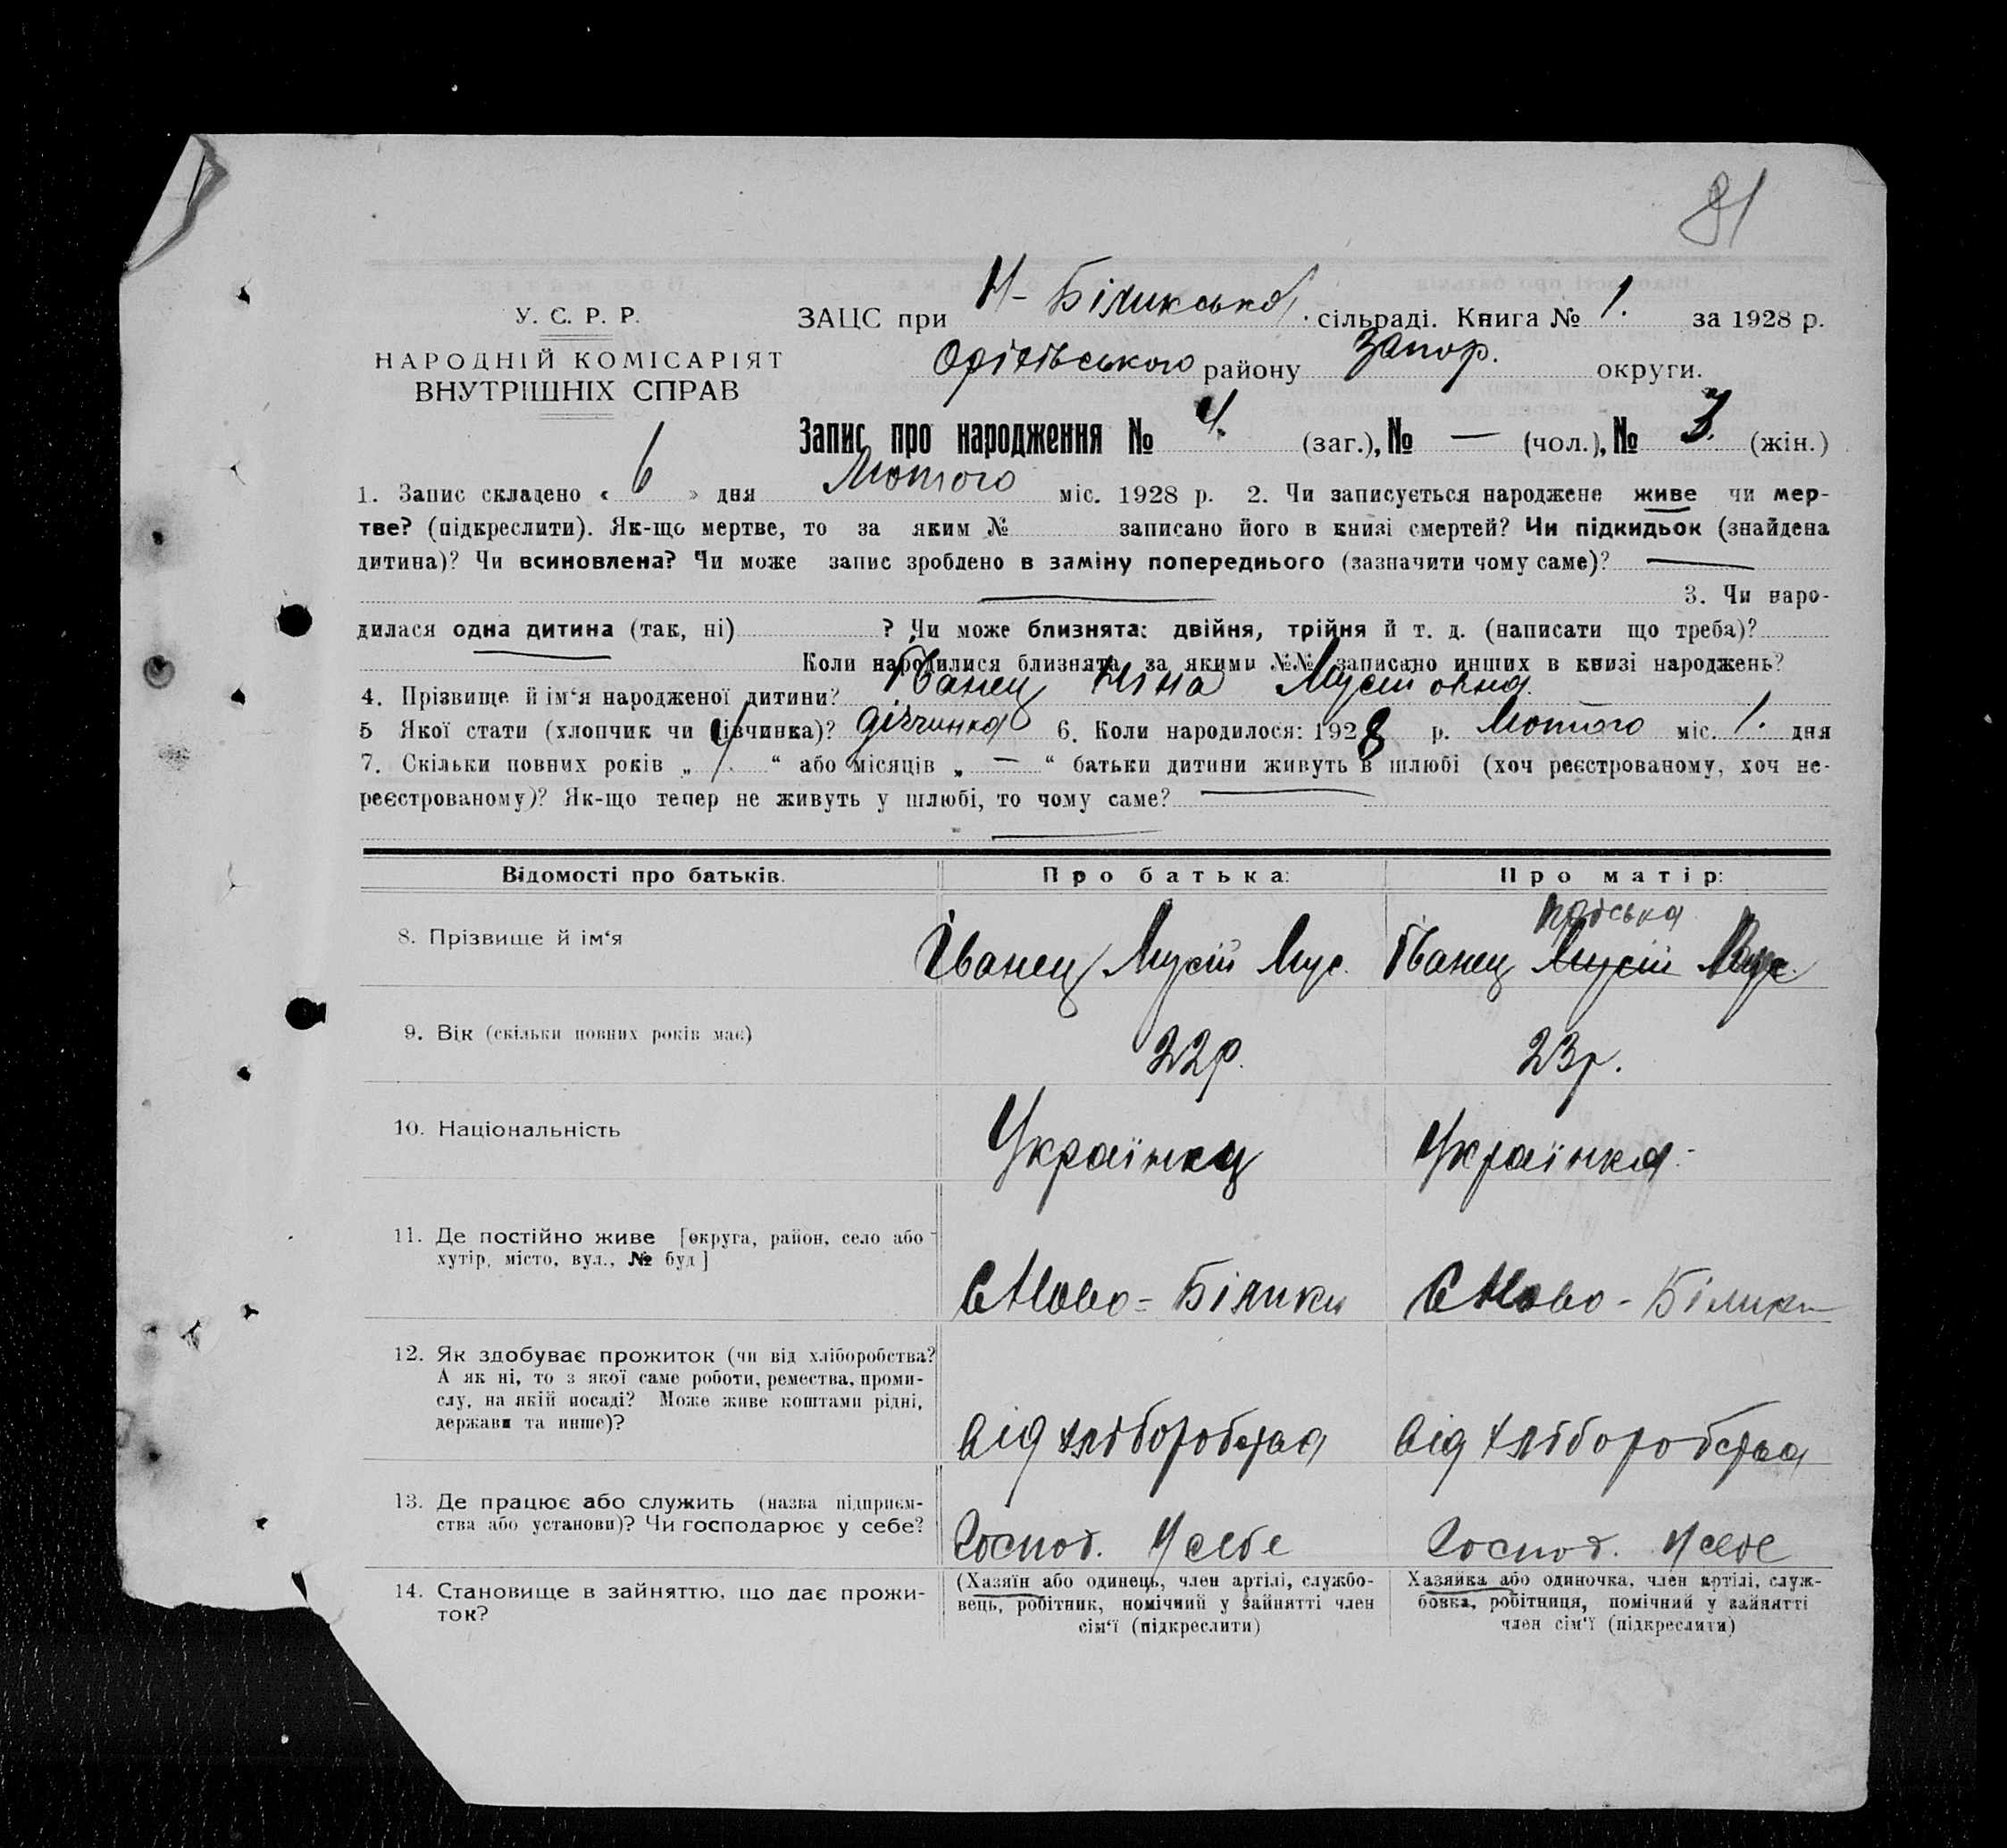 81
У. С. Р. Р.
НАРОДНІЙ КОМІСАРІЯТ
ВНУТРІШНІХ СПРАВ
ЗАЦС при Н-Біликській сільраді. Книга № 1. за 1928 р.
Оріхівського району Запор. округи.
Запис про народження № 4. (заг.), № — (чол.), № 3. (жін.)
1. Запис складено « 6 » дня Лютого міс. 1928 р. 2. Чи записується народжене живе чи мер-
тве? (підкреслити). Як-що мертве, то за яким № записано його в книзі смертей? Чи підкидьок (знайдена
дитина)? Чи всиновлена? Чи може запис зроблено в заміну попереднього (зазначити чому саме)? —
— 3. Чи наро-
дилася одна дитина (так, ні) ? Чи може близнята: двійня, трійня й т. д. (написати що треба)?
Коли народилися близнята за якими №№ записано инших в книзі народжень?
4. Прізвище й ім‘я народженої дитини? Іванец Ніна Мусіївна.
5 Якої стати (хлопчик чи дівчинка)? дівчинка 6. Коли народилося: 1928 р. Лютого міс. 1. дня
7. Скільки повних років „ 1. “ або місяців „ — “ батьки дитини живуть в шлюбі (хоч реєстрованому, хоч не-
реєстрованому)? Як-що тепер не живуть у шлюбі, то чому саме? —
—
Відомості про батьків. Про батька: Про матір:
8. Прізвище й ім‘я Іванец Мусій Мус. Іванец Мусій
9. Вік (скільки повних років має) 22р. 23р.
10. Національність Українец Українка
11. Де постійно живе [округа, район, село або
хутір, місто, вул., № буд]
с Ново-Білики с Ново-Білики
12. Як здобуває прожиток (чи від хліборобства?
А як ні, то з якої саме роботи, ремества, проми-
слу, на якій посаді? Може живе коштами рідні,
держави та инше)?
від хліборобства від хліборобства
13. Де працює або служить (назва підприєм-
ства або установи)? Чи господарює у себе?
Госпоd. У себе Госпоd. У себе
14. Становище в зайняттю, що дає прожи-
ток?
(Хазяїн або одинець, член артілі, службо-
вець, робітник, помічний у зайнятті член
сім‘ї (підкреслити)
Хазяйка або одиночка, член артілі, служ-
бовка, робітниця, помічний у зайнятті
член сім‘ї (підкреслити)